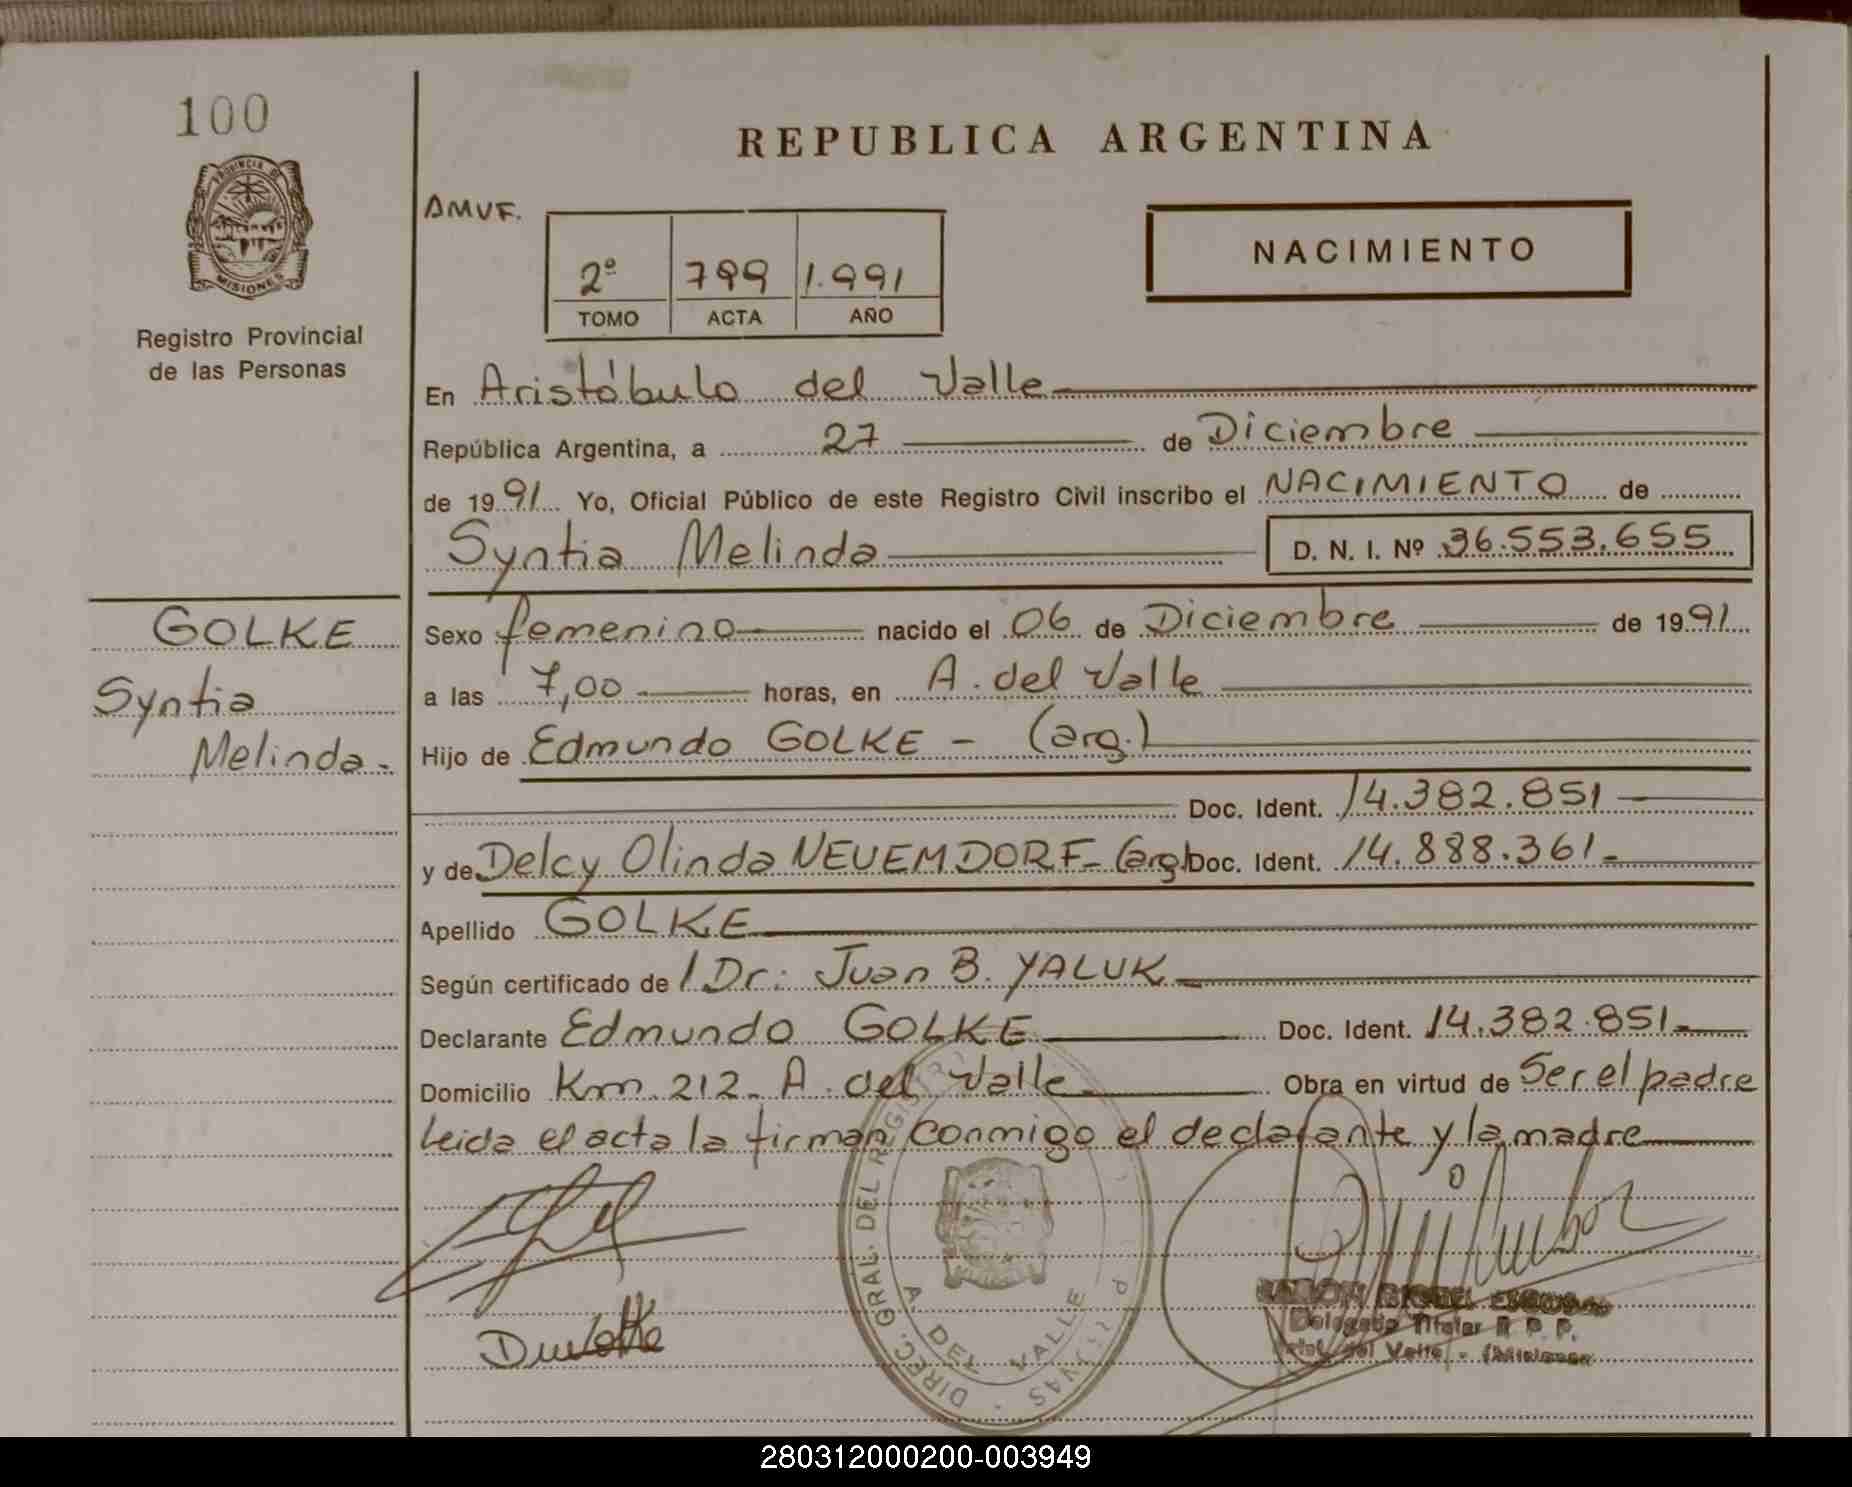 100
PROVINCIA DE
MISIONES
Registro Provincial
de las Personas
REPUBLICA ARGENTINA
AMVF.
2º 799 1.991
TOMO ACTA AÑO
NACIMIENTO
En Aristóbulo del Valle
República Argentina, a 27 de Diciembre
de 1991 Yo, Oficial Público de este Registro Civil inscribo el NACIMIENTO de
Syntia Melinda D. N. I. Nº 36.553.655
GOLKE
Syntia
Melinda.-
Sexo femenino nacido el 06 de Diciembre de 1991
a las 7,00 horas, en A. del Valle
Hijo de Edmundo GOLKE - (arg.)
Doc. Ident. 14.382.851
y de Delcy Olinda NEUEMDORF- (arg) Doc. Ident. 14.888.361-
Apellido GOLKE
Según certificado de / Dr: Juan B. YALUK
Declarante Edmundo GOLKE Doc. Ident. 14.382.851-
Domicilio Km. 212- A. del Valle Obra en virtud de Ser el padre
Leida el acta la firman conmigo el declarante y la madre
DIREC. GRAL. DEL REGISTRO
A. DEL VALLE
Delegado Titular R. P. P.
del Valle - (Misiones
280312000200-003949